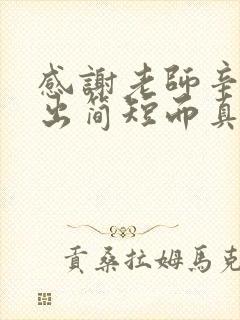 感謝老師辛
出简短而真
貢桑拉姆馬克